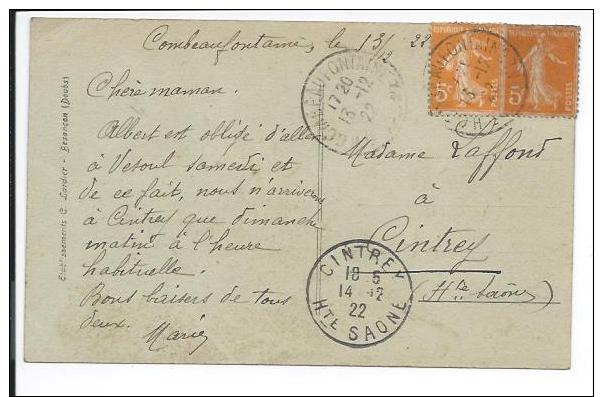 Combeaufontaine, le 13/12 22
Chère maman.
Albert est obligé d'aller
à Vesoul samedi et
de ce fait, nous n'arriverons
à Cintrey que dimanche
matin à l'heure
habituelle.
Bons baisers de tous
deux.
Marie
Madame Laffond
à
Cintrey
(Hte Saône)
5c
POSTES
5c
POSTES
17 20
13 -12
22
CINTREY
18 5
14 -12
22
HTE SAONE
Etablissements C. Lardier - Besançon (Doubs)